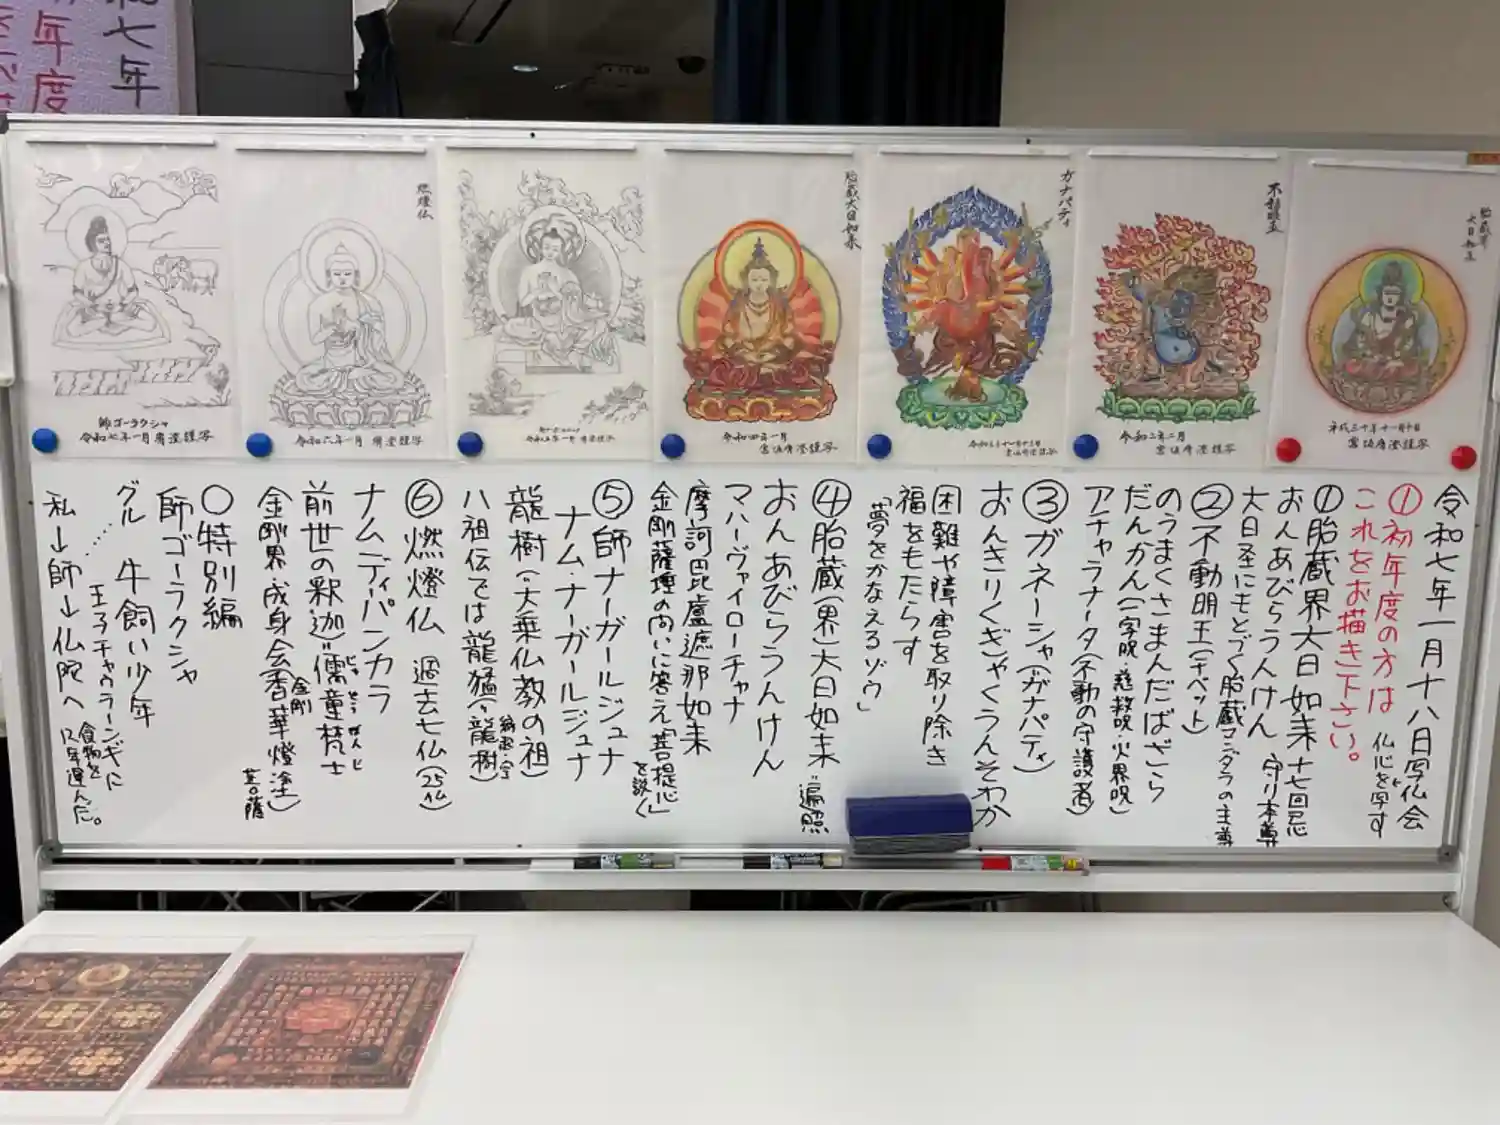 七年
年度
令和七年一月十八日写仏会
①初年度の方は 仏心を写す
これをお描き下さい。
①胎蔵界大日如来 十七回忌
おんあびらうんけん 守り本尊
大日圣にもとづく胎蔵マンダラの主尊
②不動明王(チベット)
のうまくさまんだばざら
だんかん(一字呪・慈救呪・火界呪)
アチャラナータ(不動の守護者)
③ガネーシャ(ガナパティ)
おんきりくぎゃくうんそわか
困難や障害を取り除き
福をもたらす
「夢をかなえるゾウ」
④胎蔵(界)大日如来 遍照
おんあびらうんけん
マハーヴァイローチャナ
摩訶毘盧遮那如来
金剛薩埵の問いに答え「菩提心」
を説く
⑤師ナーガールジュナ
ナム・ナーガールジュナ
龍樹(大乗仏教の祖)
縁起・空
八祖伝では龍猛(龍樹)
⑥燃燈仏 過去七仏(25仏)
ナムディーパンカラ
前世の釈迦=儒童梵士
じゅどうぼんじ
金剛
金剛界成身会(香華燈塗)
菩薩
〇特別編
師ゴーラクシャ
グル 牛飼い少年
王子チャウランギに
食物を
12年運んだ。
私→師→仏陀へ
胎蔵界
大日如来
平成三十年十一月十日
不動明王
令和二年二月
ガナパティ
胎蔵大日如来
令和四年一月
燃燈仏
令和六年一月
師ゴーラクシャ
令和七年一月